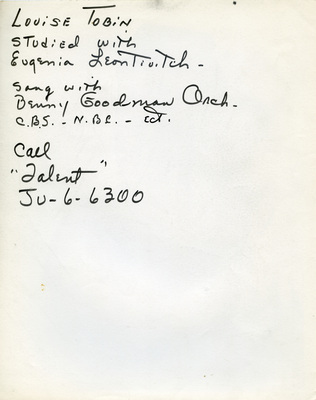 Louise Tobin
Studied with
Eugenia Leontivitch -
Sang with
Benny Goodman Orch.
C.B.S. - N.B.C. - ect.
Call
"Talent"
JU-6-6300